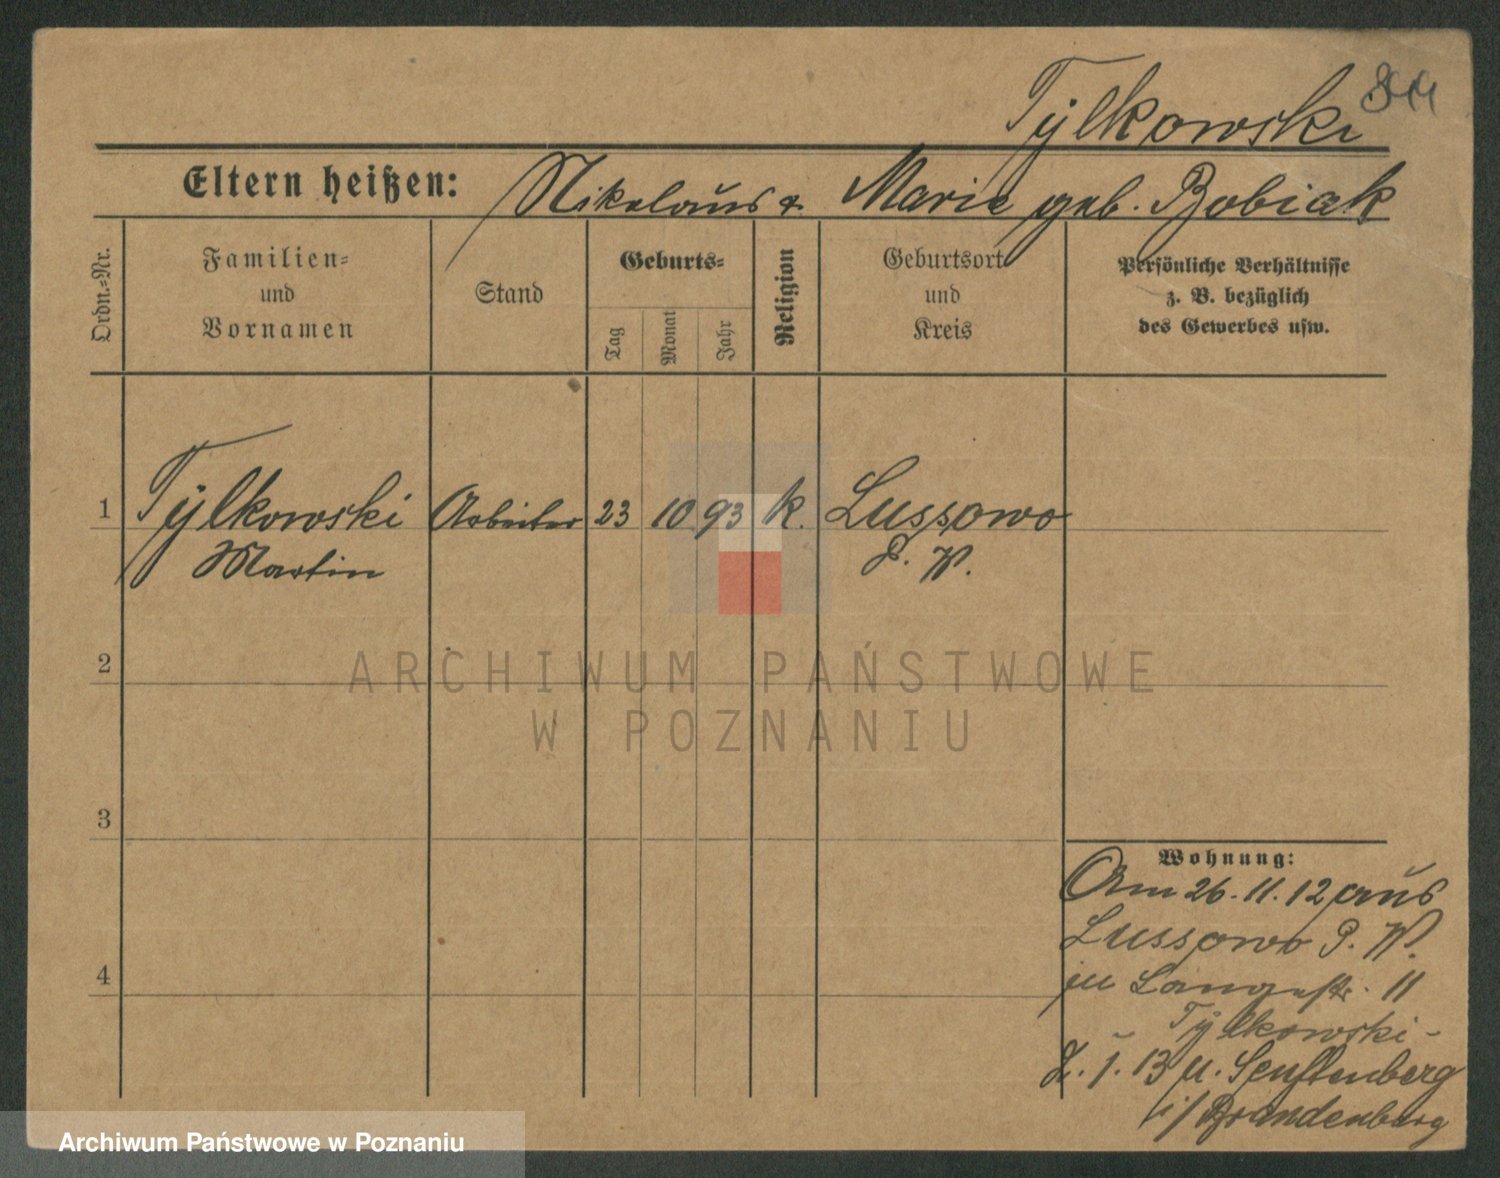 Tÿlkowski
Eltern heißen: Nikolaus & Marie geb. Bobiak
Ordn.-Nr.
Familien-
und
Vornamen
Stand
Geburts-
Tag
Monat
Jahr
Religion
Geburtsort
und
Kreis
Persönliche Verhältnisse
z. B. bezüglich
des Gewerbes usw.
1 Tÿlkowski Arbeiter 23 10 93 k. Lussowo
Martin P. W.
2
3
4
Wohnung:
Am 26. 11. 12 aus
Lussowo P. W.
zu Langestr. 11
Tÿlkowski -
1. 13 n. Senftenberg
i/ Brandenburg
ARCHIWUM PAŃSTWOWE
W POZNANIU
Archiwum Państwowe w Poznaniu